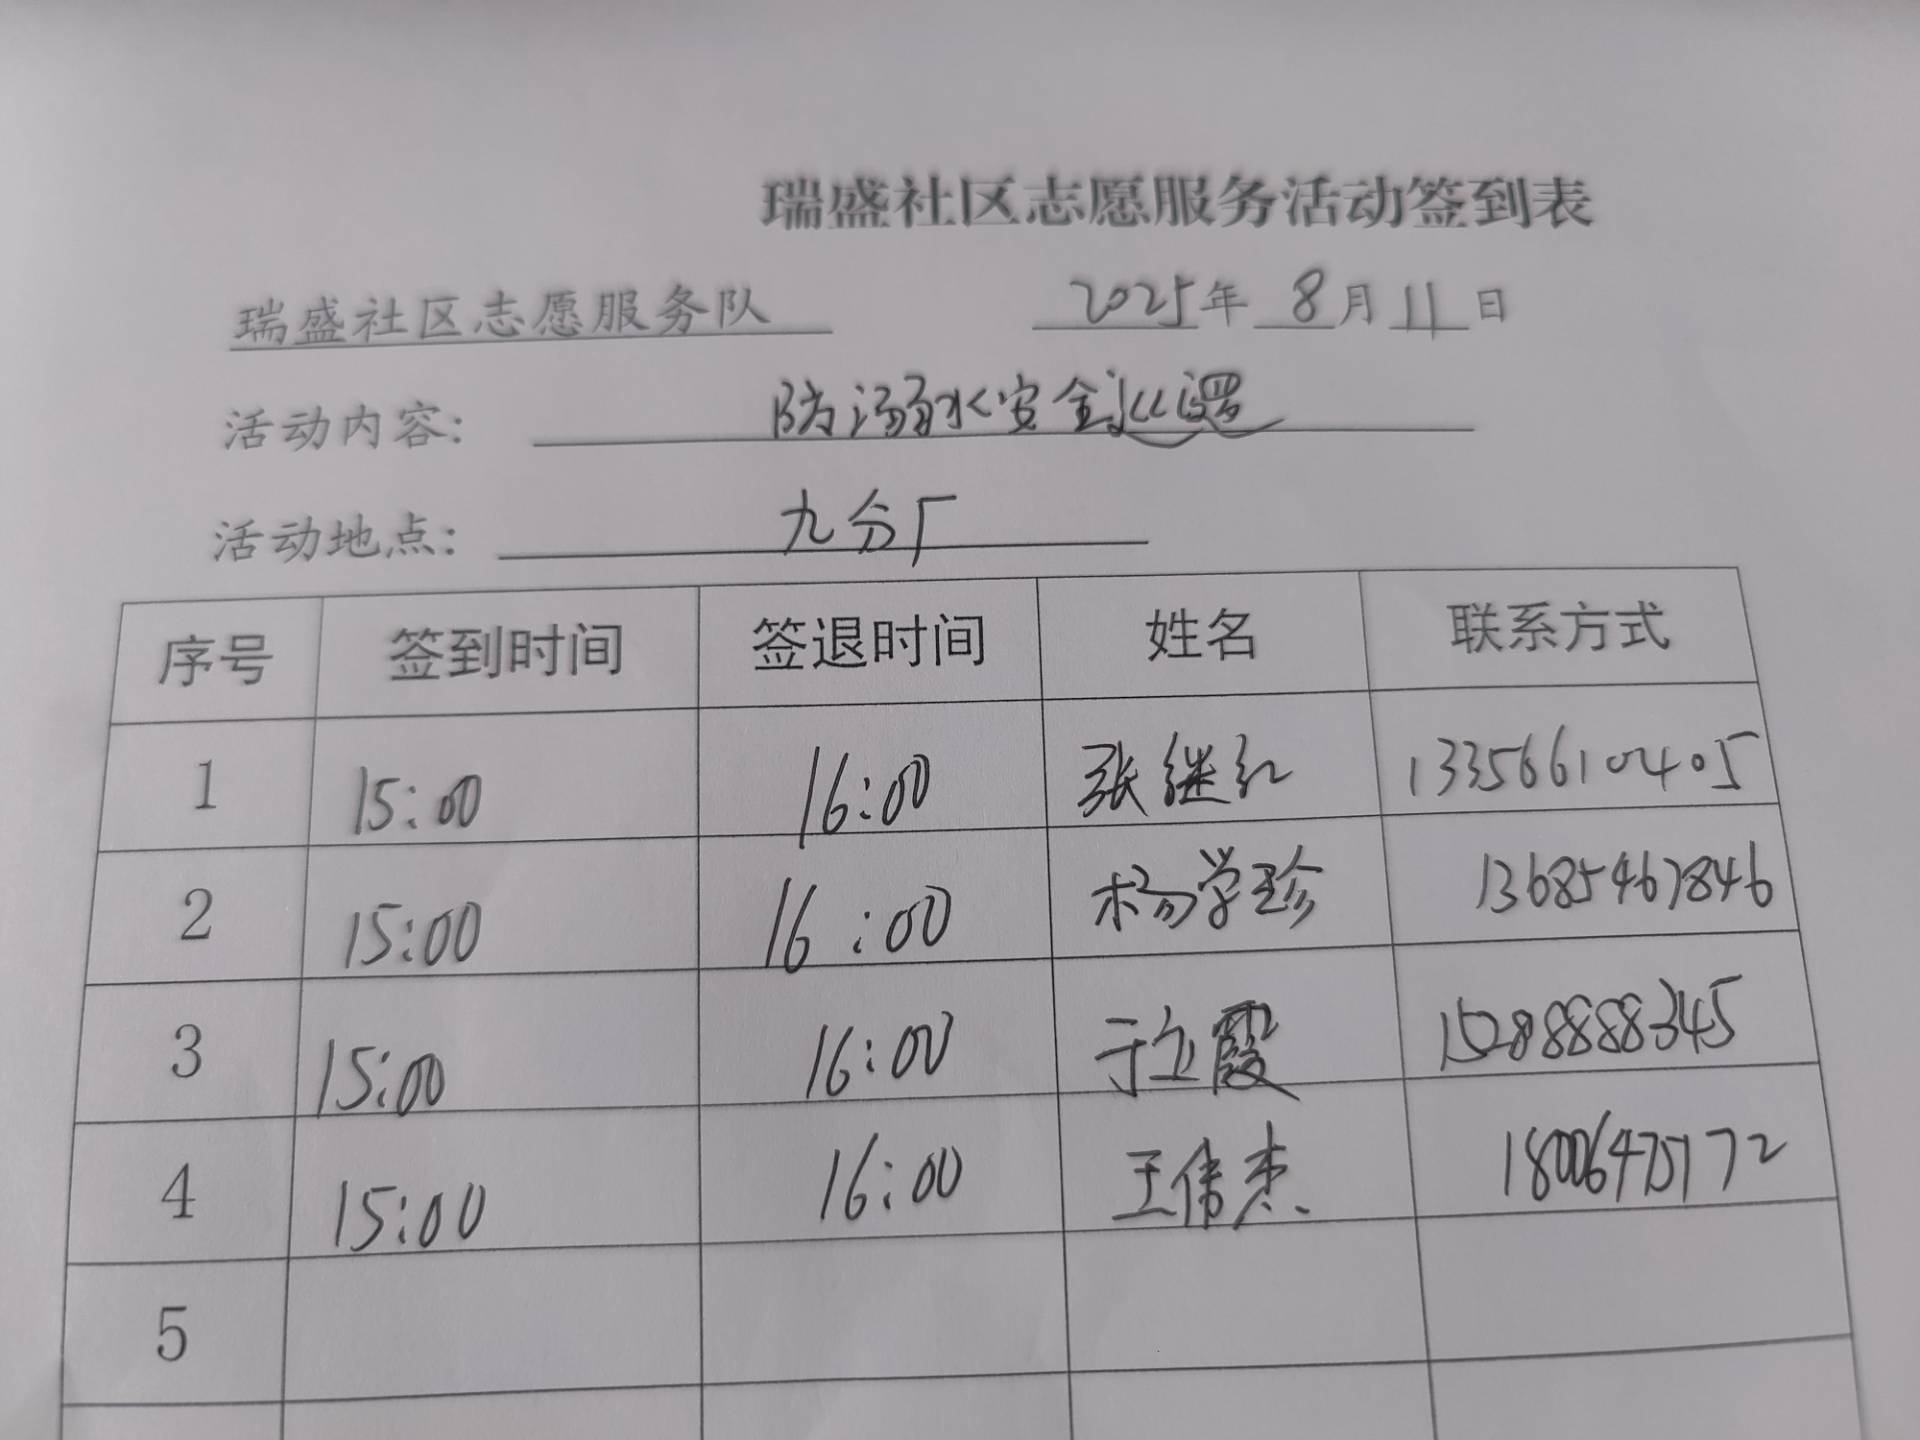 瑞盛社区志愿服务活动签到表
瑞盛社区志愿服务队 2025年 8月 11日
活动内容: 防溺水安全巡逻
活动地点: 九分厂
序号 签到时间 签退时间 姓名 联系方式
1 15:00 16:00 张继红 13356610405
2 15:00 16:00 杨学珍 13685467846
3 15:00 16:00 于立霞 15288888345
4 15:00 16:00 王伟杰 18006475172
5